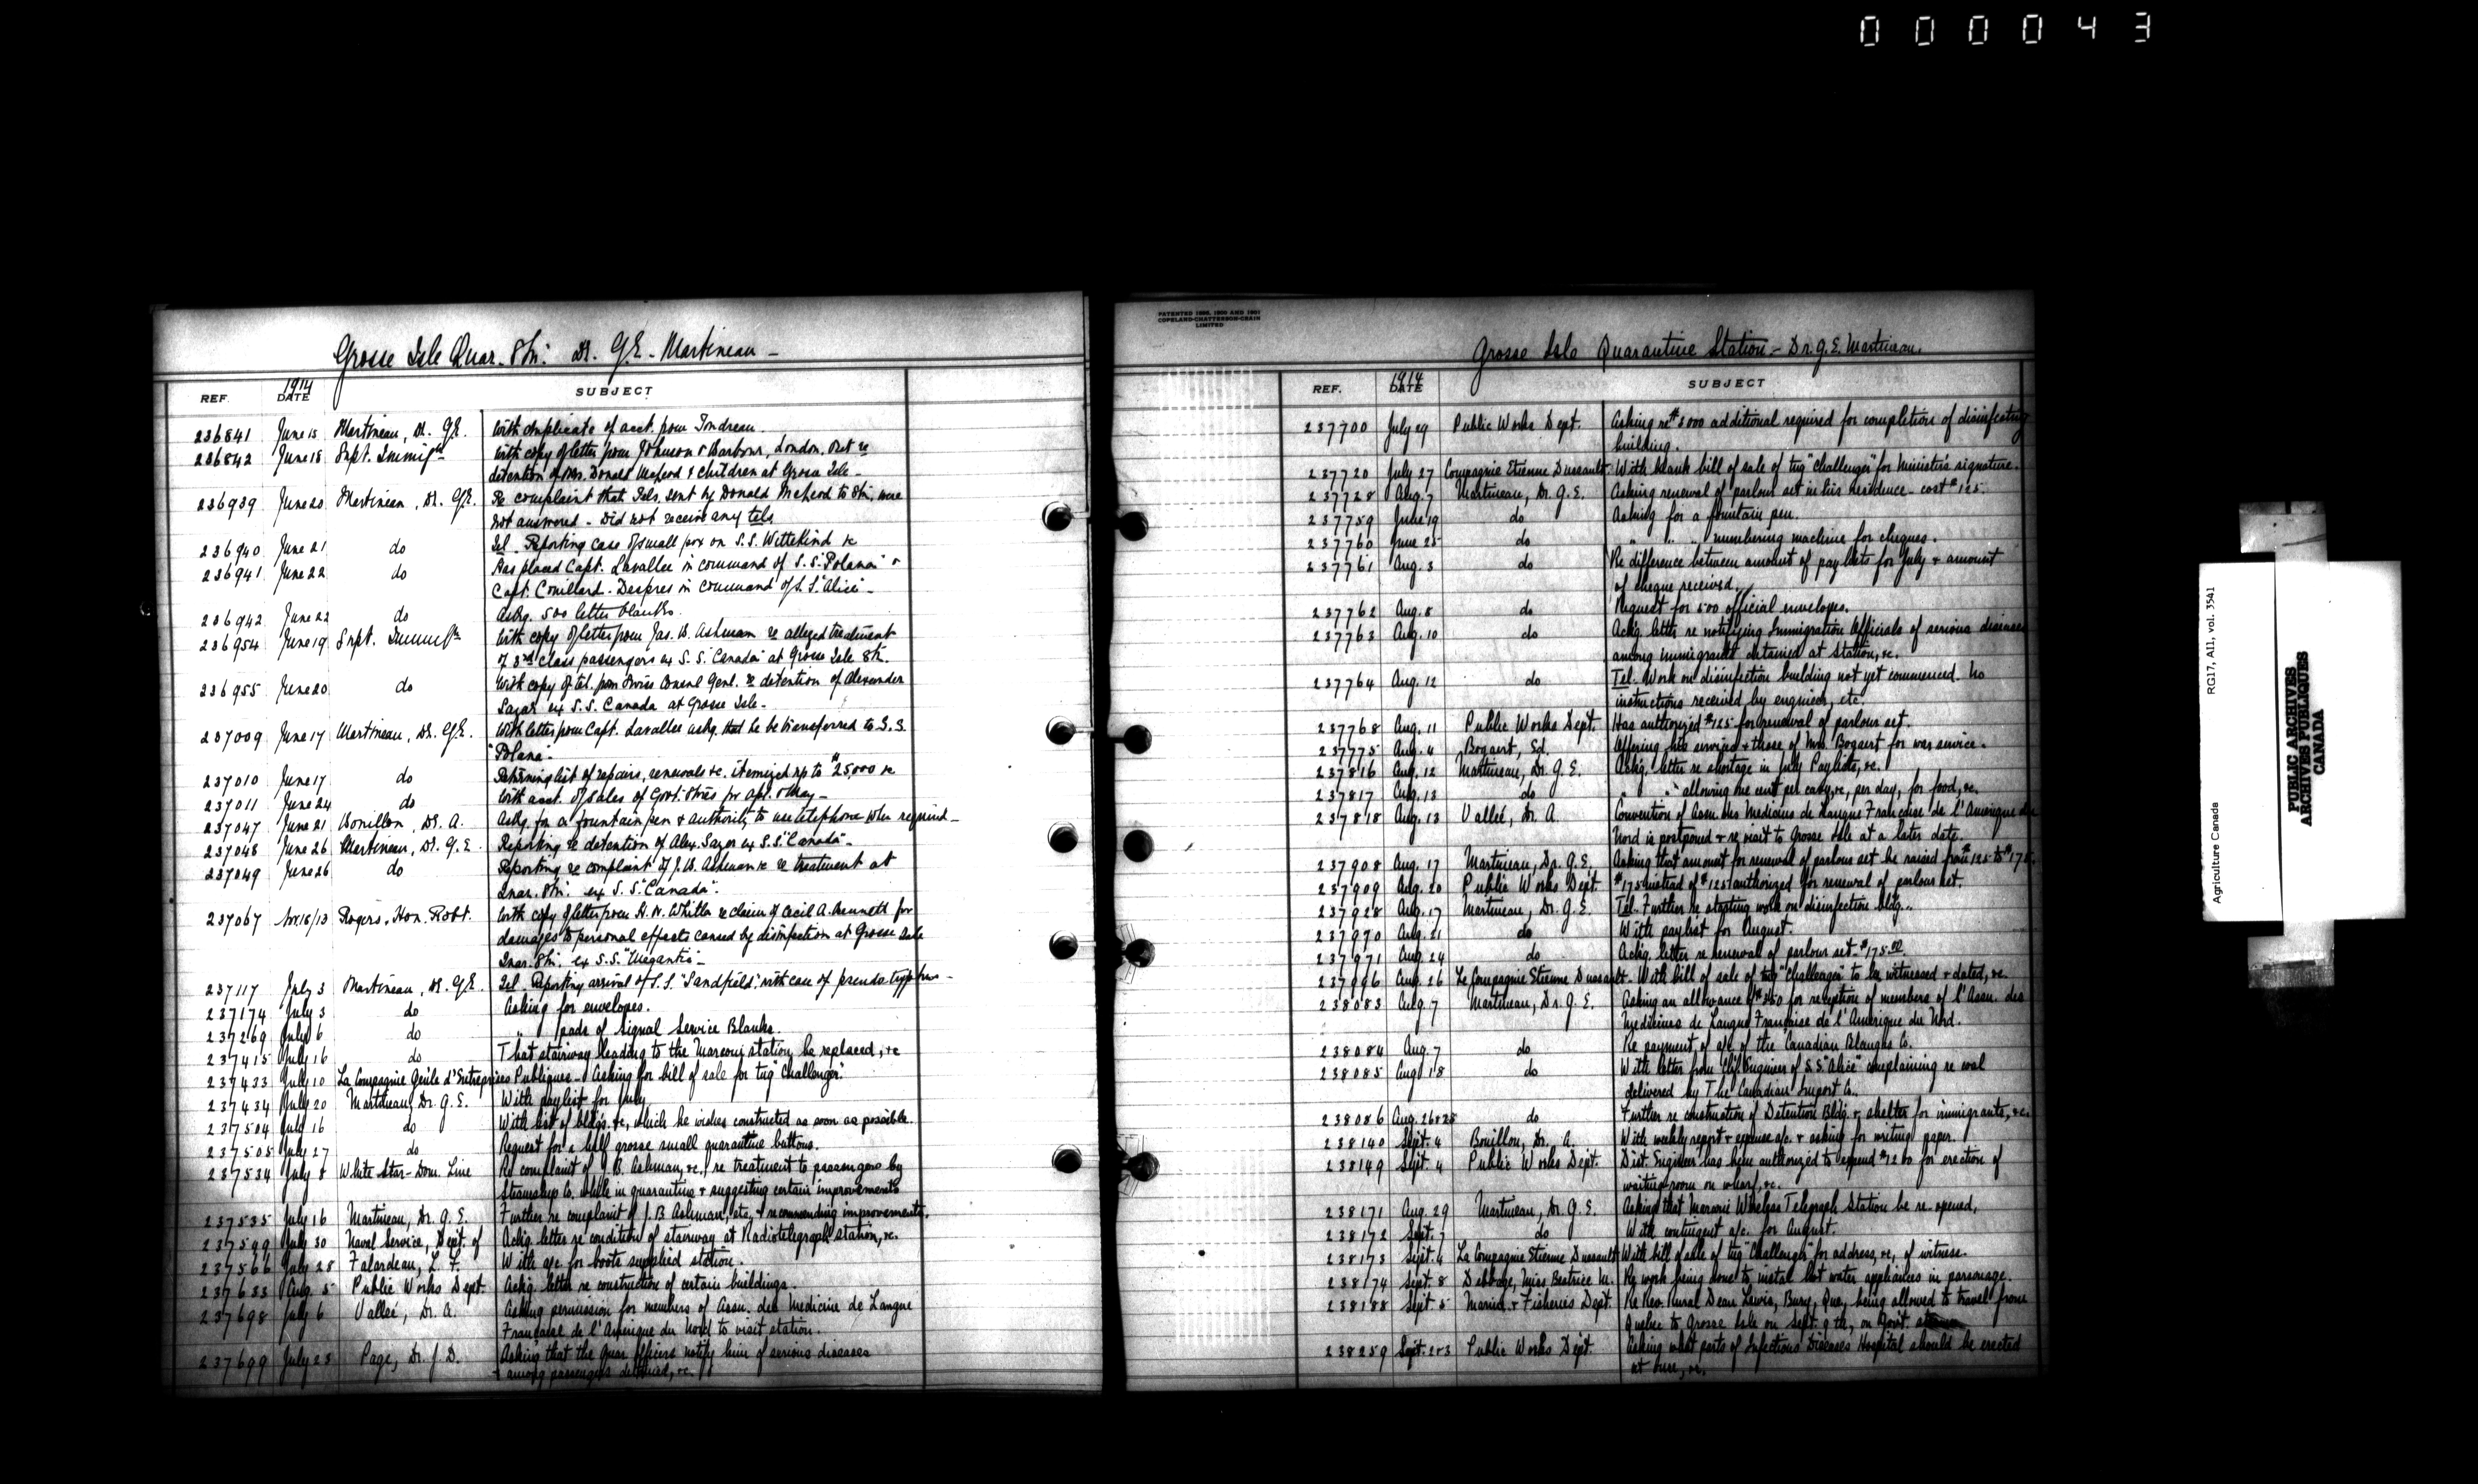 000043
Grosse Isle Quar. Stn. Dr. G.E. Martineau -
REF. 1914 DATE SUBJECT
236841 June 15 Martineau, Dr. G.E. With duplicate of acct. from
236842 June 18 Supt. Immigtn With copy of letter from Johnson & Barbour, London, Ont re
detention of Mrs. Donald McLeod & children at Grosse Isle -
236939 June 20 Martineau, Dr. G.E. Re complaint that Tels. sent by Donald McLeod to Stn. were
not answered - Did not receive any tels.
236940 June 21 do Tel. Reporting case of small pox on S.S. Wittekind &c
236941 June 22 do Has placed Capt. Lavallee in command of S.S. "Polana" &
Capt. Couillard-Despres in command of S.S. "Alice" -
236942 June 22 do Askg. 500 letter blanks.
236954 June 19 Supt. With copy of letter from Jas. B. Ashman re alleged treatment
of 3rd class passengers ex S.S. "Canada" at Grosse Isle Stn.
236955 June 20 do With copy of tel. from Swiss Consul Genl. re detention of Alexander
ex S.S. Canada at Grosse Isle -
237009 June 17 Martineau, Dr. G.E. With letter from Capt. Lavallee askg. that he be transferred to S.S.
"Polana".
237010 June 17 do Returning list of repairs, renewals &c. itemized up to $25,000 &c
237011 June 24 do With acct. of sales of Govt. Stores for Apl. & May -
237047 June 21 Bouillon, Dr. A. Askg. for a fountain pen & authority to use telephone when required -
237048 June 26 Martineau, Dr. G.E. Reporting re detention of Alex. ex S.S. "Canada" -
237049 June 26 do Reporting re complaint of J.B. Ashman &c re treatment at
Quar. Stn. ex S.S. "Canada".
237067 Nov 18/13 Rogers, Hon. Robt. With copy of letter from H.W. Whitla re claim of Cecil A. Bennett for
damages to personal effects caused by disinfection at Grosse Isle
Quar. Stn. ex S.S. "Megantic" -
237117 July 3 Martineau, Dr. G.E. Tel. Reporting arrival of S.S. "Sandfield", with case of pseudo-typhus -
237174 July 3 do Asking for envelopes.
237269 July 6 do " " pads of Signal Service Blanks.
237415 July 16 do That stairway leading to the Marconi station be replaced, &c
237433 July 10 La Compagnie Genle d'Entreprises Publiques - Asking for bill of sale for tug "Challenger".
237434 July 20 Martineau, Dr. G.E. With paylist for July
237504 July 16 do With list of bldgs. &c, which he wishes constructed as soon as possible.
237505 July 27 do Request for a half grosse small quarantine buttons.
237534 July 8 White Star-Dom. Line Re complaint of J.B. Ashman, &c, re treatment to passengers by
Steamship Co. while in quarantine & suggesting certain improvements
237535 July 16 Martineau, Dr. G.E. Further re complaint of J.B. Ashman, etc, & recommending improvements.
237549 July 30 Naval Service, Dept. of Ackg. letter re condition of stairway at Radiotelegraph station, &c.
237566 July 28 Falardeau, L. F. With a/c. for boots supplied station.
237633 Aug. 5 Public Works Dept. Ackg. letter re construction of certain buildings.
237698 July 6 Vallee, Dr. A. Asking permission for members of Assn. des Medicins de Langue
Francaise de l'Amerique du Nord to visit station.
237699 July 23 Page, Dr. J.D. Asking that the quar. officers notify him of serious diseases
among passengers detained, &c.
PATENTED 1898, 1900 AND 1901
COPELAND-CHATTERSON-CRAIN
LIMITED
Grosse Isle Quarantine Station - Dr. G.E. Martineau.
REF. 1914 DATE SUBJECT
237700 July 29 Public Works Dept. Asking re $3000 additional required for completion of disinfecting
building.
237720 July 27 Compagnie Etienne Dussault. With blank bill of sale of tug "Challenger" for Minister's signature.
237728 Aug. 7 Martineau, Dr. G.E. Asking renewal of parlour set in his residence - cost $125.
237759 June 19 do Asking for a fountain pen.
237760 June 25 do " " " numbering machine for cheques.
237761 Aug. 3 do Re difference between amount of paylists for July & amount
of cheque received.
237762 Aug. 8 do Request for 500 official envelopes.
237763 Aug. 10 do Ackg. letter re notifying Immigration Officials of serious diseases
among immigrants detained at Station, &c.
237764 Aug. 12 do Tel. Work on disinfection building not yet commenced. No
instructions received by engineer, etc.
237768 Aug. 11 Public Works Dept. Has authorized $125 for renewal of parlour set.
237775 Aug. 4 Bogaert, Ed. Offering his services & those of Mrs. Bogaert for war service.
237816 Aug. 12 Martineau, Dr. G.E. Ackg. letter re shortage in July Paylists, &c.
237817 Aug. 13 do " " allowing one cent per &c, per day, for food, &c.
237818 Aug. 13 Vallee, Dr. A. Convention of Assn. des Medicins de Langue Francaise de l'Amerique du
Nord is postponed & re visit to Grosse Isle at a later date.
237908 Aug. 17 Martineau, Dr. G.E. Asking that amount for renewal of parlour set be raised from $125 to $175.
237909 Aug. 20 Public Works Dept. $175 instead of $125 authorized for renewal of parlour set.
237928 Aug. 17 Martineau, Dr. G.E. Tel. Further re starting work on disinfection bldg.
237970 Aug. 21 do With paylist for August.
237971 Aug. 24 do Ackg. letter re renewal of parlour set - $175.00
237996 Aug. 26 La Compagnie Etienne Dussault - With bill of sale of tug "Challenger" to be witnessed & dated, &c.
238083 Aug. 7 Martineau, Dr. G.E. Asking an allowance of $350 for reception of members of l'Assn. des
Medicins de Langue Francaise de l'Amerique du Nord.
238084 Aug. 7 do Re payment of a/c. of the Canadian Co.
238085 Aug. 18 do With letter from Chf. Engineer of S.S. "Alice" complaining re coal
delivered by The Canadian Import Co.
238086 Aug. 26&28 do Further re construction of Detention Bldg. & shelter for immigrants, &c.
238140 Sept. 4 Bouillon, Dr. A. With weekly report & expense a/c. & asking for writing paper.
238149 Sept. 4 Public Works Dept. Dist. Engineer has been authorized to expend $1200 for erection of
waiting-room on wharf, &c.
238171 Aug. 29 Martineau, Dr. G.E. Asking that Marconi Wireless Telegraph Station be re-opened.
238172 Sept. 7 do With contingent a/c. for August.
238173 Sept. 4 La Compagnie Etienne Dussault With bill of sale of tug "Challenger" for address, &c, of witness.
238174 Sept. 8 Debbage, Miss Beatrice M. Re work being done to instal hot water appliances in parsonage.
238188 Sept. 5 Marine & Fisheries Dept. Re Rev. Rural Dean Lewis, Bury, Que, being allowed to travel from
Quebec to Grosse Isle on Sept. 9th, on Govt.
238259 Sept. 2&3 Public Works Dept. Asking what parts of Infectious Diseases Hospital should be erected
at once, &c.
Agriculture Canada RG17, AII, vol. 3541
PUBLIC ARCHIVES
ARCHIVES PUBLIQUES
CANADA